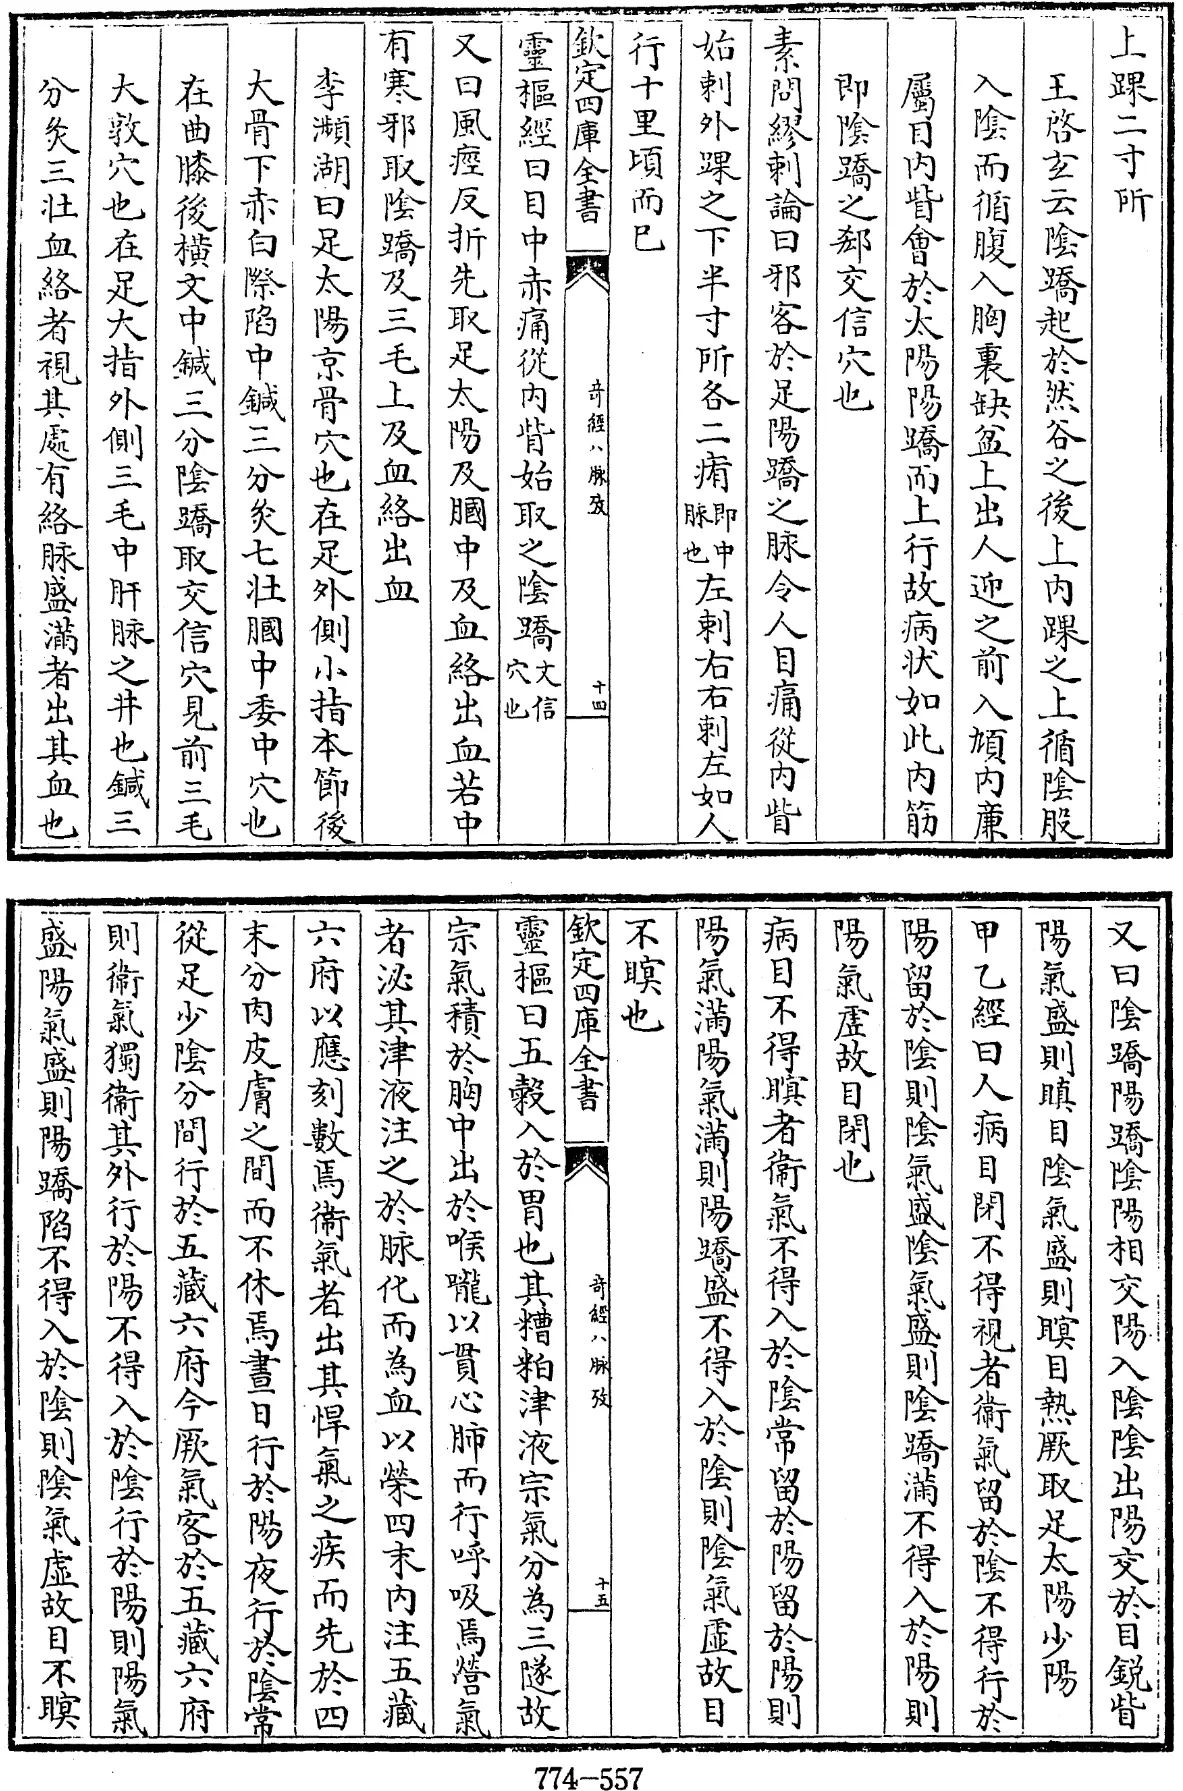 上踝二寸所
王啓玄云陰蹻起於然谷之後上內踝之上循陰股
入陰而循腹入胸裏缺盆上出人迎之前入頄內廉
屬目內眥會於太陽陽蹻而上行故病狀如此內筋
即陰蹻之郄交信穴也
素問繆刺論曰邪客於足陽蹻之脉令人目痛從內眥
始刺外踝之下半寸所各二痏即申脉也左刺右右刺左如人
行十里頃而已
欽定四庫全書
奇經八脉攷
十四
靈樞經曰目中赤痛從內眥始取之陰蹻交信穴也
又曰風痙反折先取足太陽及膕中及血絡出血若中
有寒邪取陰蹻及三毛上及血絡出血
李瀕湖曰足太陽京骨穴也在足外側小指本節後
大骨下赤白際陷中鍼三分灸七壯膕中委中穴也
在曲膝後橫文中鍼三分陰蹻取交信穴見前三毛
大敦穴也在足大指外側三毛中肝脉之井也鍼三
分灸三壯血絡者視其處有絡脉盛滿者出其血也
又曰陰蹻陽蹻陰陽相交陽入陰陰出陽交於目銳眥
陽氣盛則瞋目陰氣盛則瞑目熱厥取足太陽少陽
甲乙經曰人病目閉不得視者衛氣留於陰不得行於
陽留於陰則陰氣盛陰氣盛則陰蹻滿不得入於陽則
陽氣虛故目閉也
病目不得瞑者衛氣不得入於陰常留於陽留於陽則
陽氣滿陽氣滿則陽蹻盛不得入於陰則陰氣虛故目
不瞑也
欽定四庫全書
奇經八脉攷
十五
靈樞曰五穀入於胃也其糟粕津液宗氣分為三隧故
宗氣積於胸中出於喉嚨以貫心肺而行呼吸焉營氣
者泌其津液注之於脉化而為血以榮四末內注五藏
六府以應刻數焉衛氣者出其悍氣之疾而先於四
末分肉皮膚之間而不休焉晝日行於陽夜行於陰常
從足少陰分間行於五藏六府今厥氣客於五藏六府
則衛氣獨衛其外行於陽不得入於陰行於陽則陽氣
盛陽氣盛則陽蹻陷不得入於陰則陰氣虛故目不瞑
774-557